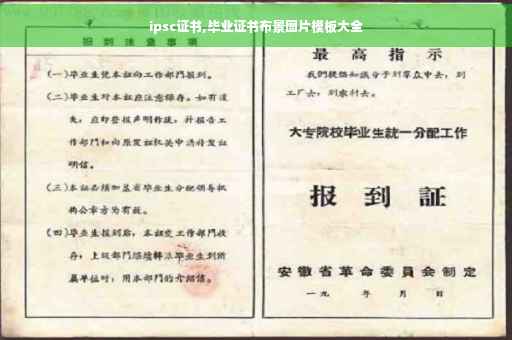 ipsc证书,毕业证书布景图片模板大全
报到注意事项
(一)毕业生凭本证向工作部门报到。
(二)毕业生对本证应注意保存。如有遗
失,应即登报声明作废,并报告工
作部门和向原发证机关申请补发证
明信。
(三)本证必须加盖省毕业生分配领导机
构公章方为有效。
(四)毕业生报到后,本证交工作部门收
存;上级部门
属单位时,用本部门的介绍信。
最高指示
我们提倡知识分子到群众中去,到
工厂去,到农村去。
大专院校毕业生統一分配工作
报到証
安徽省革命委員会制定
一九 年 月 日